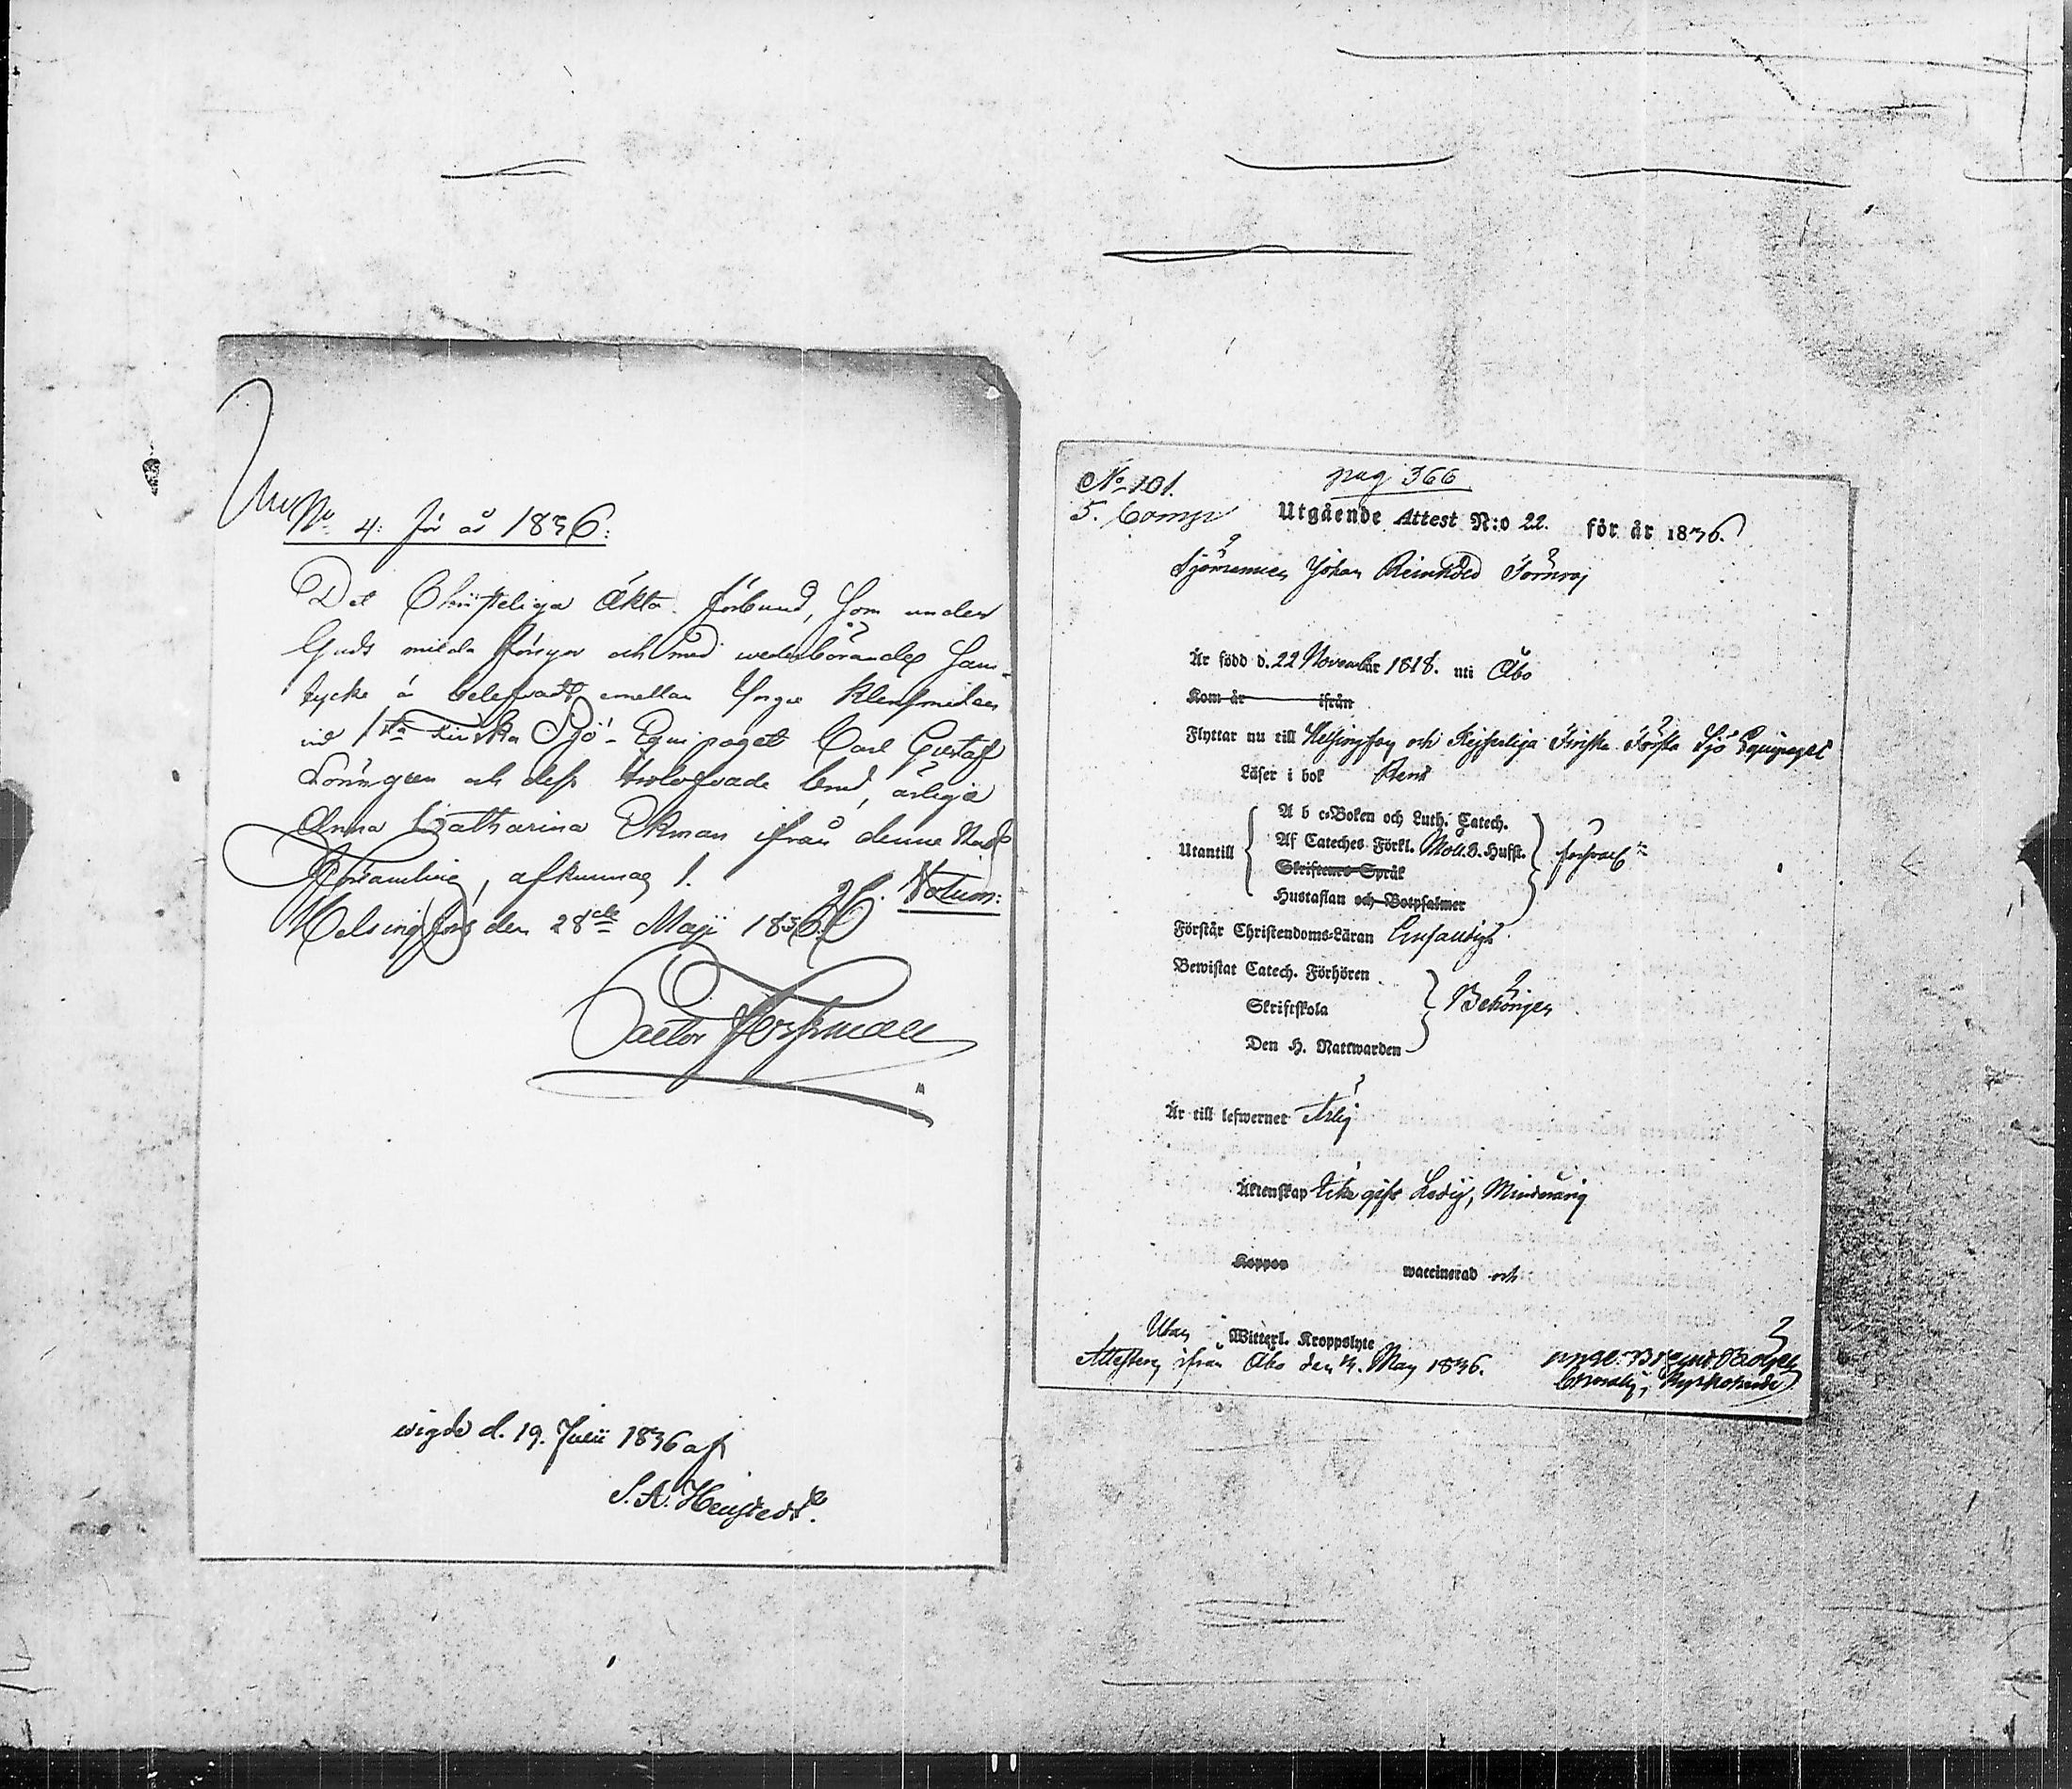 No 4: för år 1836:
Det Christeliga Äkta förbund, som under
Guds milda försyn och med wederbörandes sam-
tycke är belefvadt emellan Ynge Klensmeden
vid 1sta Finska Sjö-Equipaget Carl Gustaf
Lönngren och dess trolofvade brud, ärliga
Anna Catharina Ekman ifrån denne Stads
Församling, afkunnas 1. 2. Notum:
Helsingfors den 28de Maji 1836.
Pastor
wigde d. 19. Julii 1836 af
S. A.
No 101. pag 366
5. Comp Utgående Attest N:o 22. för år 1836.
Sjömannen Johan Reinhold
Är född d. 22 November 1818. uti Åbo
Kom år ifrån
Flyttar nu till Helsingfors och Kejserliga Finska Första Sjö Equipaget
Läser i bok Rent
A b c-Boken och Luth. Catech.
Utantill Af Cateches Förkl. Moll. B. Hufst. försvarl
Skriftenes Språk
Hustaflan och Botpsalmer
Förstår Christendoms-Läran Enfaldigt
Bewistat Catech. Förhören
Skriftskola Behörigen
Den H. Nattwarden
Är till lefwernet Ärlig
Äktenskap Icke gift Ledig, Minderårig
Koppor waccinerad och
Utan Witterl. Kroppslyte
Attesterar ifrån Åbo den 13. May 1836.